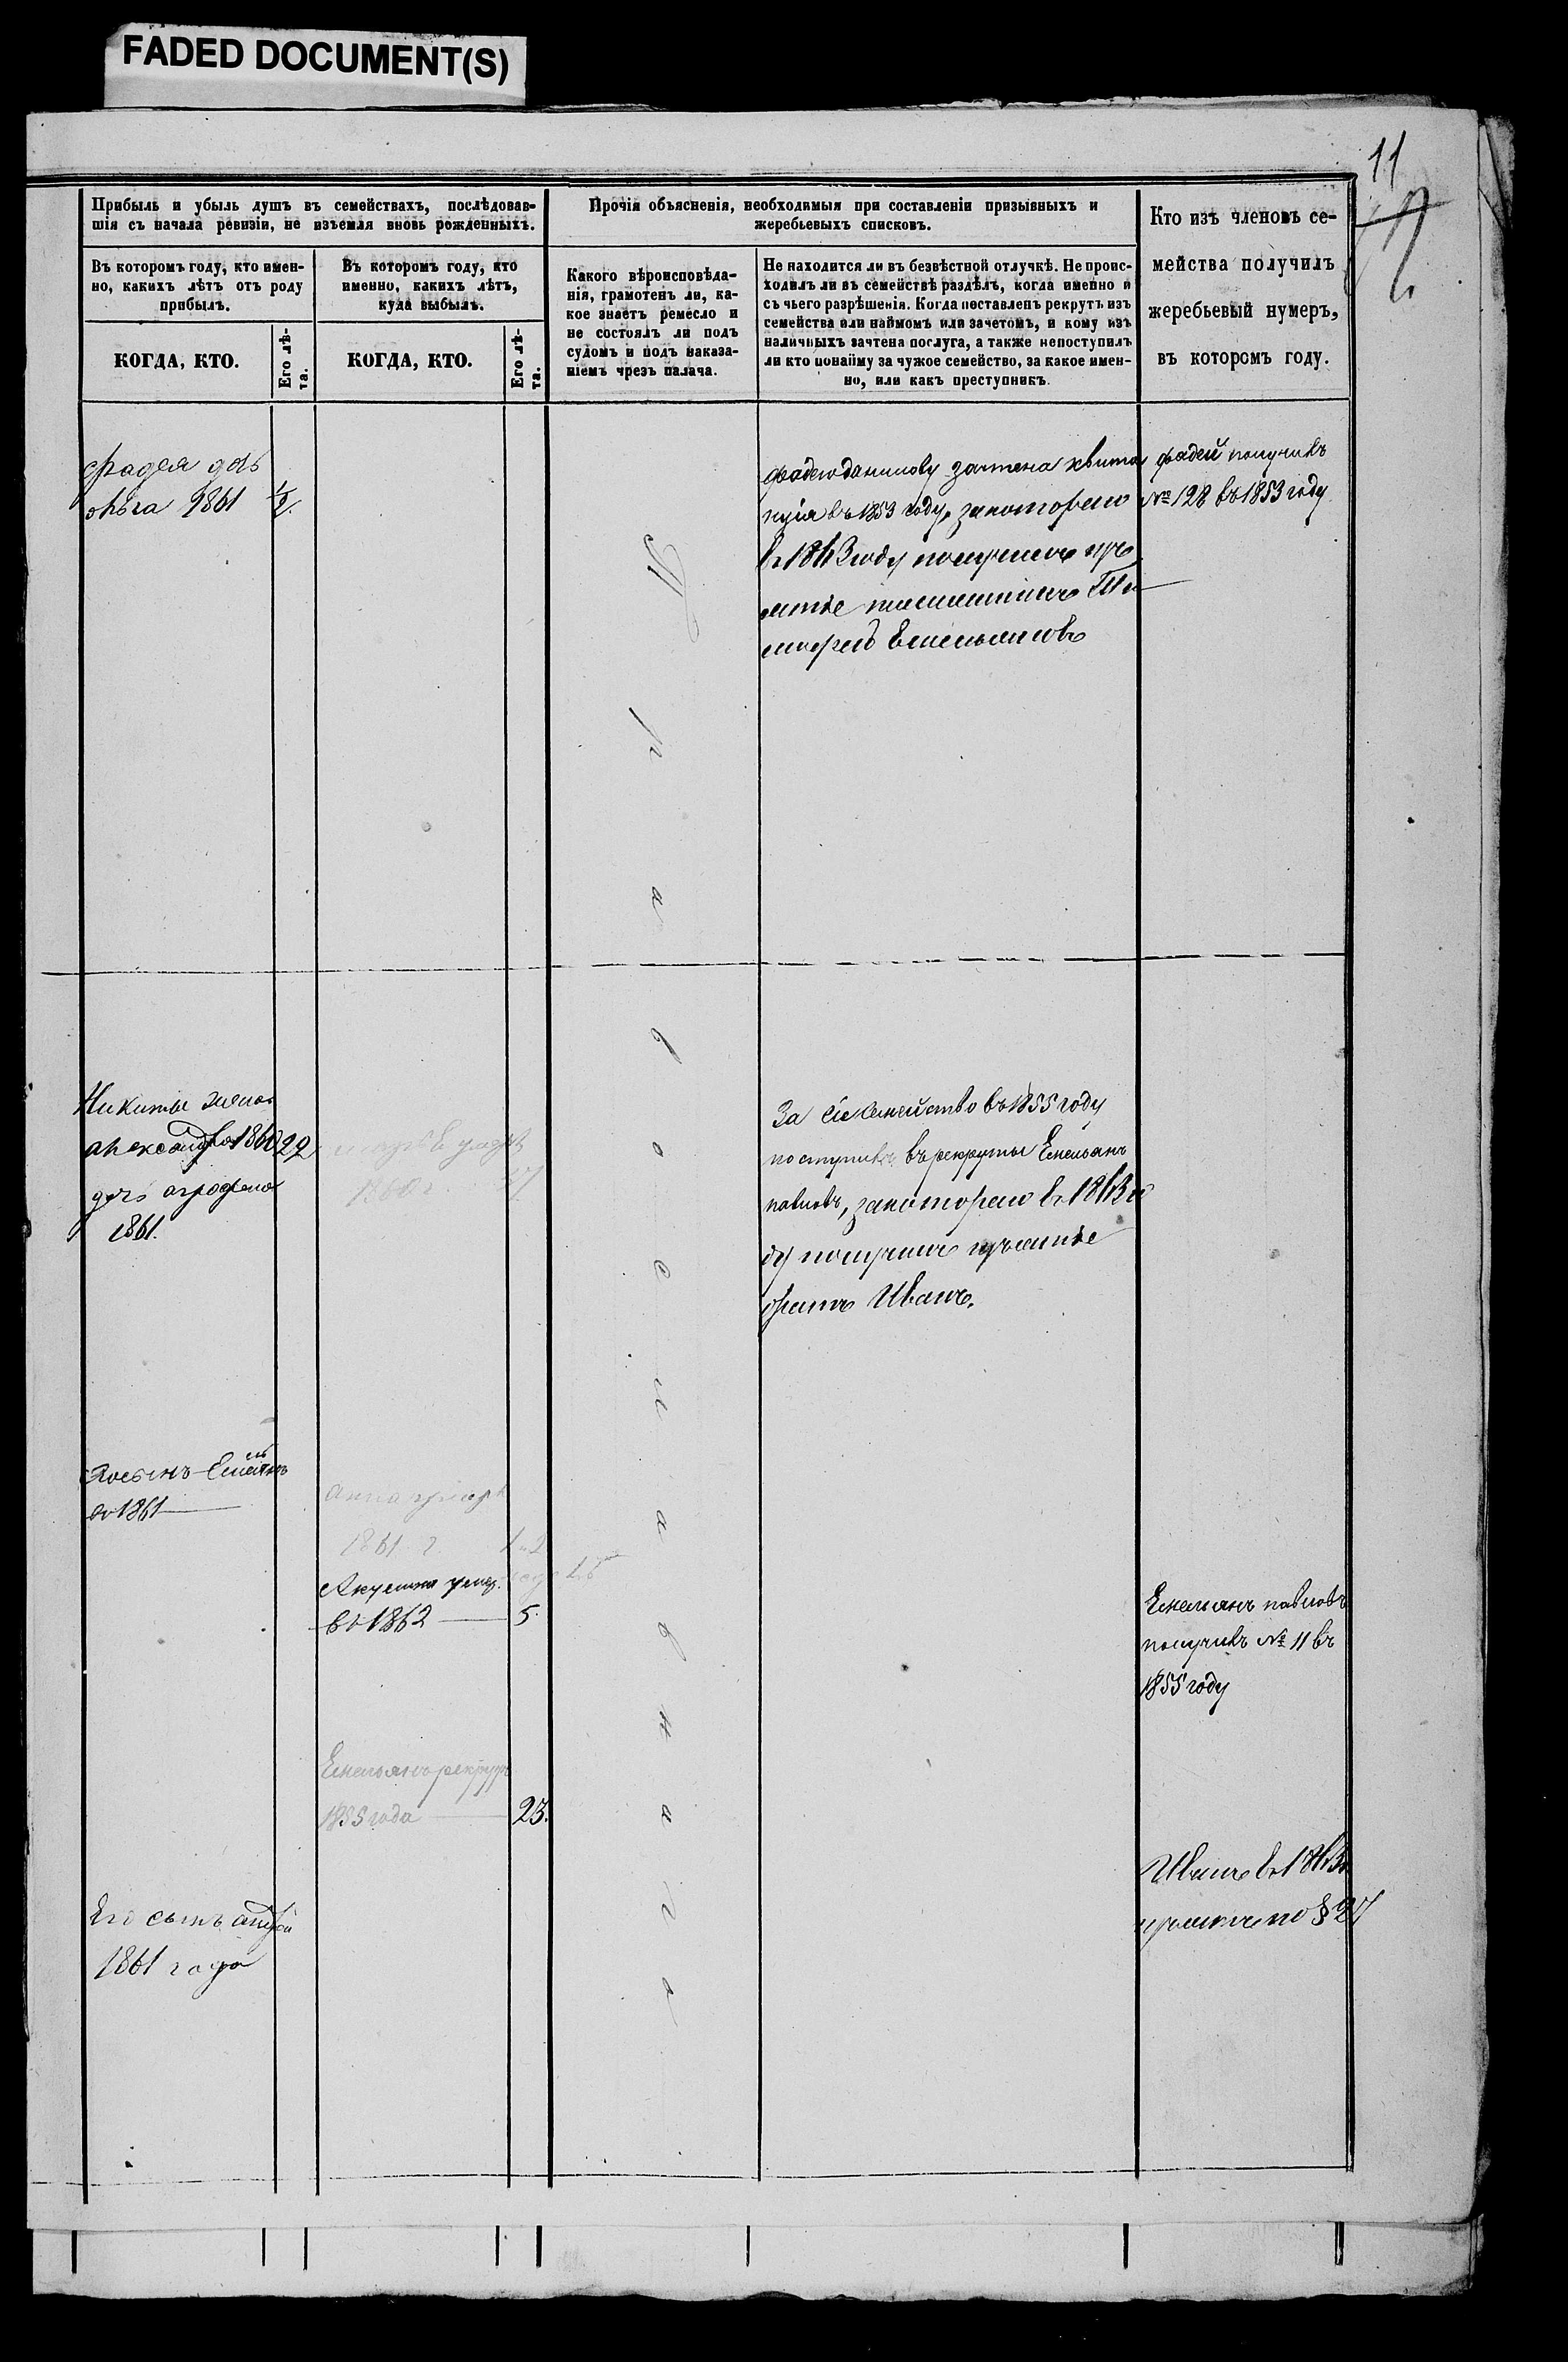 FADED DOCUMENT(S)
11
Прибыль и убыль душъ въ семействахъ, послѣдовав-
шія съ начала ревизіи, не изъемля вновь рожденныхъ.
Прочія объясненія, необходимыя при составленіи призывныхъ и
жеребьевыхъ списковъ.
Кто изъ членовъ се-
мейства получилъ
жеребьевый нумеръ,
въ которомъ году.
Въ которомъ году, кто имен-
но, какихъ лѣтъ отъ роду
прибылъ.
Въ которомъ году, кто
именно, какихъ лѣтъ,
куда выбылъ.
Какого вѣроисповѣда-
нія, грамотенъ ли, ка-
кое знаетъ ремесло и
не состоялъ ли подъ
судомъ и подъ наказа-
ніемъ чрезъ палача.
Не находится ли въ безвѣстной отлучкѣ. Не проис-
ходилъ ли въ семействѣ раздѣлъ, когда именно и
съ чьего разрѣшенія. Когда поставленъ рекрутъ изъ
семейства или наймомъ или зачетомъ, и кому изъ
наличныхъ зачтена послуга, а также непоступилъ
ли кто понайму за чужое семейство, за какое имен-
но, или какъ преступникъ.
КОГДА, КТО.
Его лѣ-
та.
КОГДА, КТО.
Его лѣ-
та.
фадея дочь
ольга 1861 1/2.
фадею данилову зачтена квитан
ція въ 1853 году, за котораго
в 1863 году получилъ
Емельяновъ
фадей получилъ
№ 128 въ 1853 году
Православнаго
Никиты жена
александра 1860 22
дочь аграфена
1861.
умеръ
1860 г.
За сіе Семейство въ 1855 году
поступилъ въ рекруты Емельянъ
павловъ, за котораго в 1863 го
ду получилъ
братъ Иванъ.
1861
анна умерла
1861 г.
Акулина умер.
въ 1862 5.
Емельянъ павловъ
получилъ № 11 въ
1855 году
Емельянъ рекрутъ
1855 года 23.
Иванъ в 1863
по § 27
Его сынъ андрей
1861 года